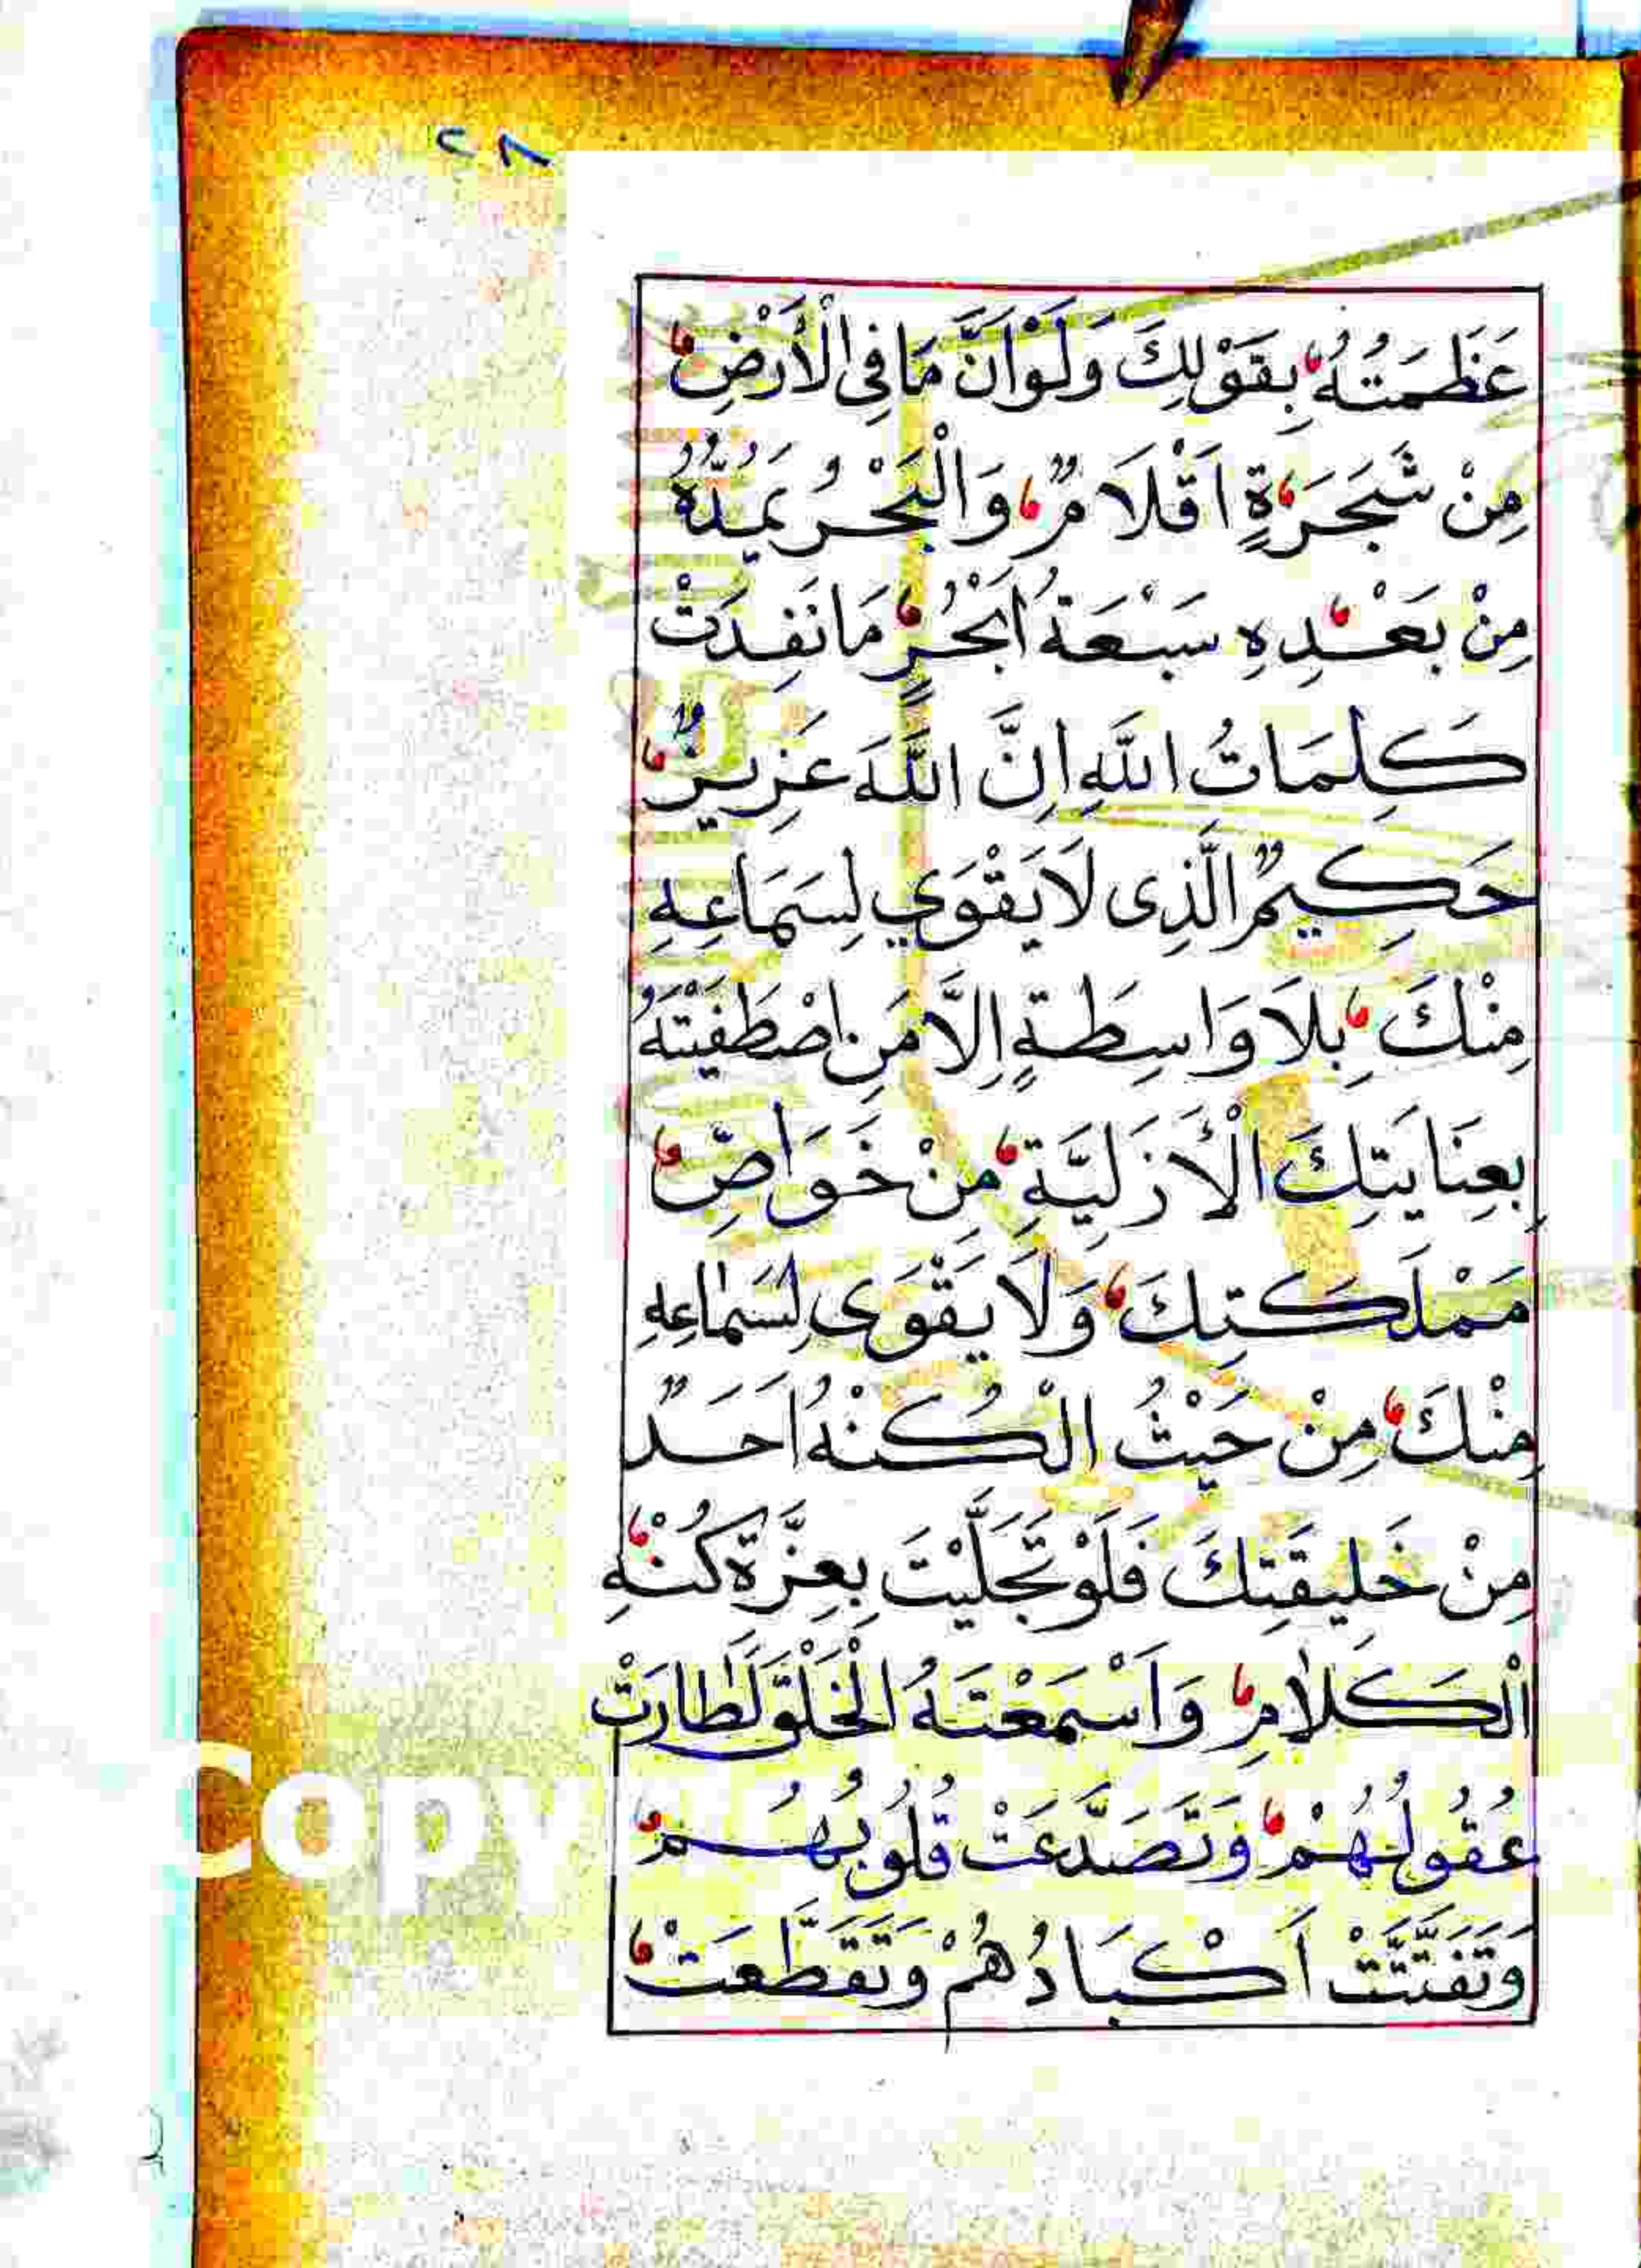 ٢٨
عَظَمَتُهُ بِقَوْلِكَ وَلَوْ اَنَّ مَا فِي الْأَرْضِ
مِنْ شَجَرَةٍ اَقْلَامٌ وَالْبَحْرُ يَمُدُّهُ
مِنْ بَعْدِهِ سَبْعَةُ اَبْحُرٍ مَا نَفِدَتْ
كَلِمَاتُ اللَّهِ اِنَّ اللَّهَ عَزِيزٌ
حَكِيمٌ الَّذِى لَا يَقْوَي لِسَمَاعِهِ
مِنْكَ بِلَا وَاسِطَةٍ اِلَّا مَنِ اصْطَفَيْتَهُ
بِعِنَايَتِكَ الْأَزَلِيَّةِ مِنْ خَوَاصِّ
مَمْلَكَتِكَ وَلَا يَقْوَى لِسَمَاعِهِ
مِنْكَ مِنْ حَيْثُ الْكُنْهُ اَحَدٌ
مِنْ خَلِيقَتِكَ فَلَوْ تَجَلَّيْتَ بِعِزَّةِ كُنْهِ
الْكَلَامِ وَاَسْمَعْتَهُ الْخَلْقَ لَطَارَتْ
عُقُولُهُمْ وَتَصَدَّعَتْ قُلُوبُهُمْ
وَتَفَتَّتَتْ اَكْبَادُهُمْ وَتَقَطَّعَتْ
Copy